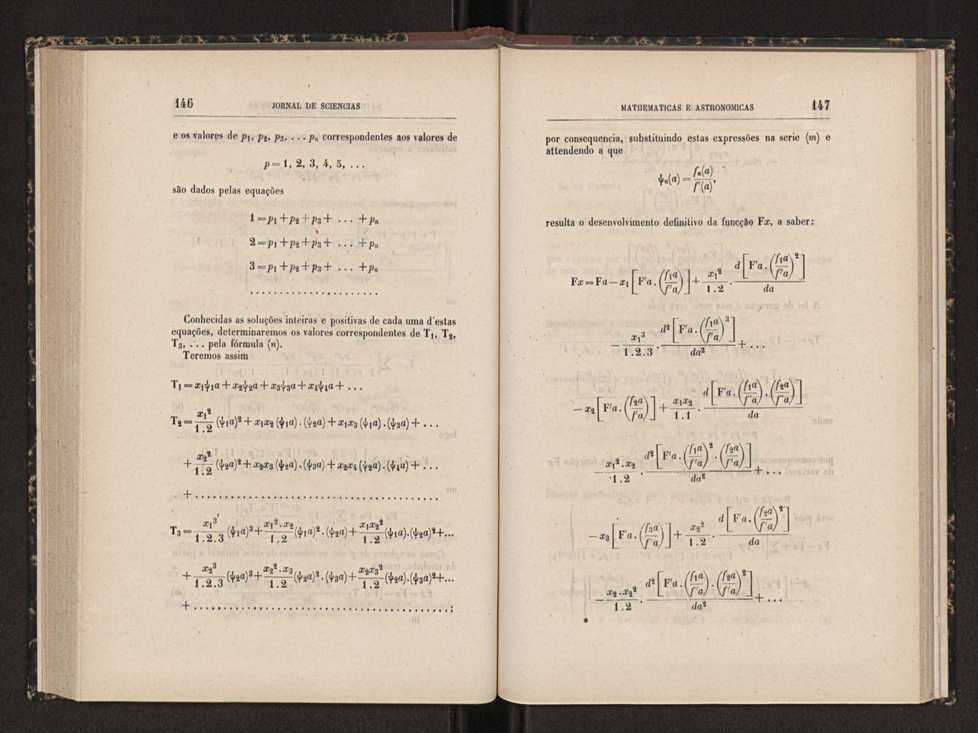 146 JORNAL DE SCIENCIAS
e os valores de p₁, p₂, p₃, . . . pₙ correspondentes aos valores de
p = 1, 2, 3, 4, 5, . . .
são dados pelas equações
1 = p₁ + p₂ + p₃ + . . . + pₙ
2 = p₁ + p₂ + p₃ + . . . + pₙ
3 = p₁ + p₂ + p₃ + . . . + pₙ
. . . . . . . . . . . . . . . . . . . .
Conhecidas as soluções inteiras e positivas de cada uma d'estas
equações, determinaremos os valores correspondentes de T₁, T₂,
T₃, . . . pela fórmula (n).
Teremos assim
T₁ = x₁ψ₁a + x₂ψ₂a + x₃ψ₃a + x₄ψ₄a + . . .
T₂ = x₁²/1.2 (ψ₁a)² + x₁x₂ (ψ₁a) . (ψ₂a) + x₁x₃ (ψ₁a) . (ψ₃a) + . . .
+ x₂²/1.2 (ψ₂a)² + x₂x₃ (ψ₂a) . (ψ₃a) + x₂x₄ (ψ₂a) . (ψ₄a) + . . .
+ . . . . . . . . . . . . . . . . . . . . . . . . . . . . . . . . . . . . .
T₃ = x₁³/1.2.3 (ψ₁a)³ + x₁².x₂/1.2 (ψ₁a)² . (ψ₂a) + x₁x₂²/1.2 (ψ₁a).(ψ₂a)² + ...
+ x₂³/1.2.3 (ψ₂a)³ + x₂².x₃/1.2 (ψ₂a)² . (ψ₃a) + x₂x₃²/1.2 (ψ₂a).(ψ₃a)² + ...
+ . . . . . . . . . . . . . . . . . . . . . . . . . . . . . . . . . . . . . ;
MATHEMATICAS E ASTRONOMICAS 147
por consequencia, substituindo estas expressões na serie (m) e
attendendo a que
ψₙ(a) = fₙ(a)/f'(a),
resulta o desenvolvimento definitivo da funcção Fx, a saber:
Fx = Fa − x₁ [F'a . (f₁a/f'a)] + x₁²/1.2 . d [F'a . (f₁a/f'a)²]/da
− x₁³/1.2.3 . d² [F'a . (f₁a/f'a)³]/da² + . . .
− x₂ [F'a . (f₂a/f'a)] + x₁x₂/1.1 . d [F'a . (f₁a/f'a) . (f₂a/f'a)]/da
− x₁².x₂/1.2 . d² [F'a . (f₁a/f'a)² . (f₂a/f'a)]/da² + . . .
− x₃ [F'a . (f₃a/f'a)] + x₂²/1.2 . d [F'a . (f₂a/f'a)²]/da
− x₂.x₂²/1.2 . d² [F'a . (f₁a/f'a) . (f₂a/f'a)²]/da² + . . .
*